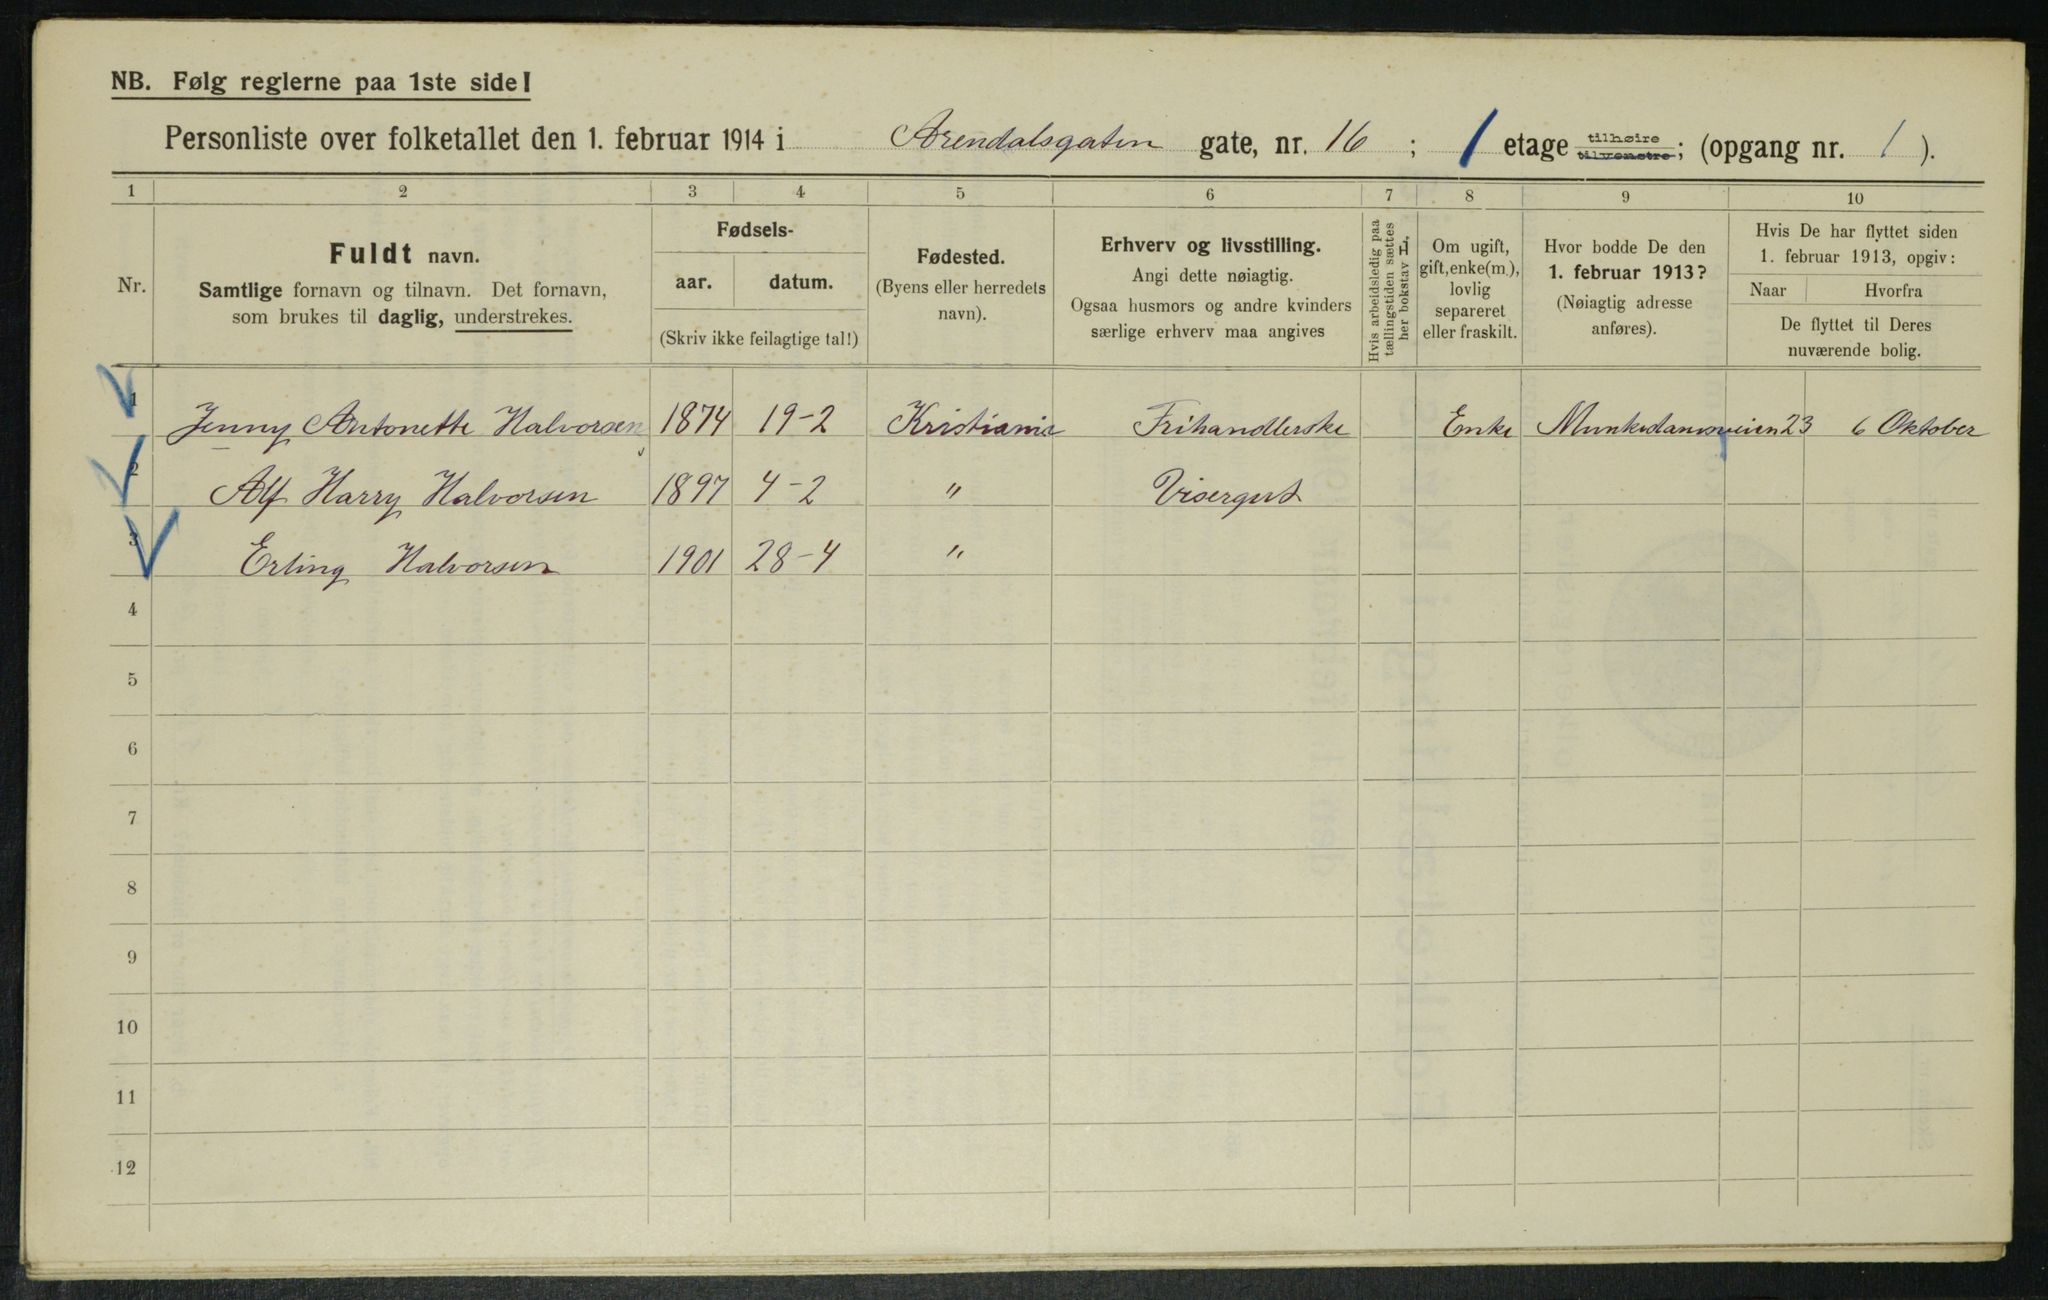 NB. Følg reglerne paa 1ste side!
Personliste over folketallet den 1. februar 1914 i Arendalsgaten gate, nr. 16 ; 1 etage tilhøire tilvenstre; (opgang nr. 1 ).
1 2 3 4 5 6 7 8 9 10
Nr.
Fuldt navn.
Samtlige fornavn og tilnavn. Det fornavn,
som brukes til daglig, understrekes.
Fødsels-
aar. datum.
(Skriv ikke feilagtige tal!)
Fødested.
(Byens eller herredets
navn).
Erhverv og livsstilling.
Angi dette nøiagtig.
Ogsaa husmors og andre kvinders
særlige erhverv maa angives
Hvis arbeidsledig paa
tællingstiden sættes
her bokstav H.
Om ugift,
gift, enke(m.),
lovlig
separeret
eller fraskilt.
Hvor bodde De den
1. februar 1913?
(Nøiagtig adresse
anføres).
Hvis De har flyttet siden
1. februar 1913, opgiv:
Naar Hvorfra
De flyttet til Deres
nuværende bolig.
1 Jenny Antonette Halvorsen 1874 19-2 Kristiania Frihandlerske Enke Munkedamsveien 23 6 Oktober
2 Alf Harry Halvorsen 1897 4-2 " Visergut
3 Erling Halvorsen 1901 28-4 "
4
5
6
7
8
9
10
11
12